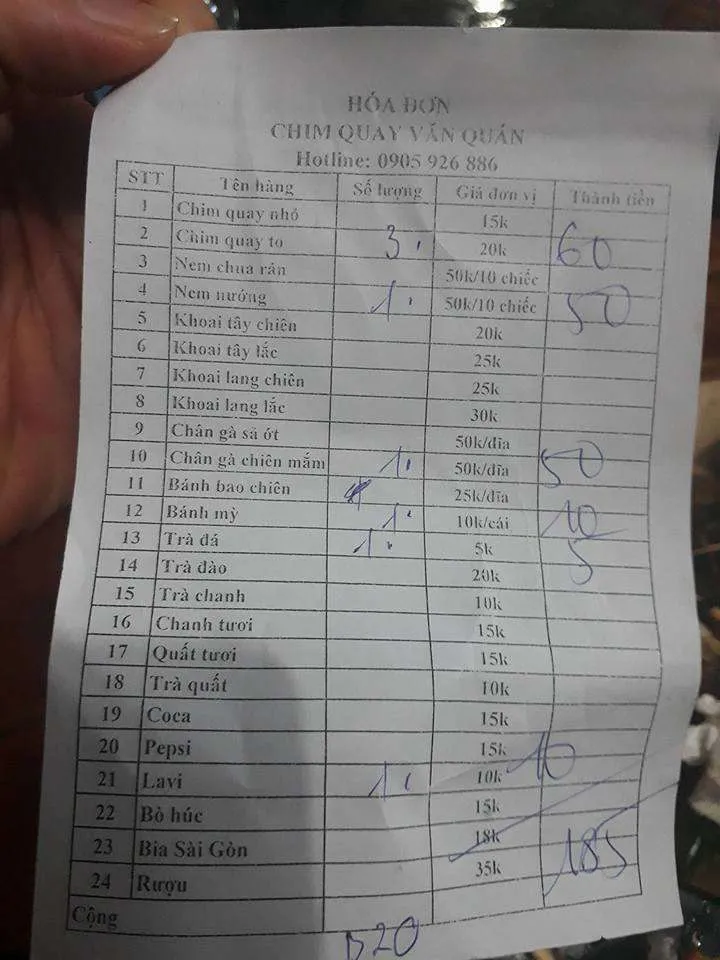 HÓA ĐƠN
CHIM QUAY VĂN QUÁN
Hotline: 0905 926 886
STT Tên hàng Số lượng Giá đơn vị Thành tiền
1 Chim quay nhỏ 15k
2 Chim quay to 3 20k 60
3 Nem chua rán 50k/10 chiếc
4 Nem nướng 1 50k/10 chiếc 50
5 Khoai tây chiên 20k
6 Khoai tây lắc 25k
7 Khoai lang chiên 25k
8 Khoai lang lắc 30k
9 Chân gà sả ớt 50k/đĩa
10 Chân gà chiên mắm 1 50k/đĩa 50
11 Bánh bao chiên 25k/đĩa
12 Bánh mỳ 1 10k/cái 10
13 Trà đá 1 5k 5
14 Trà đào 20k
15 Trà chanh 10k
16 Chanh tươi 15k
17 Quất tươi 15k
18 Trà quất 10k
19 Coca 15k
20 Pepsi 15k
21 Lavi 1 10k 10
22 Bò húc 15k
23 Bia Sài Gòn 18k
24 Rượu 35k 185
Cộng
D20